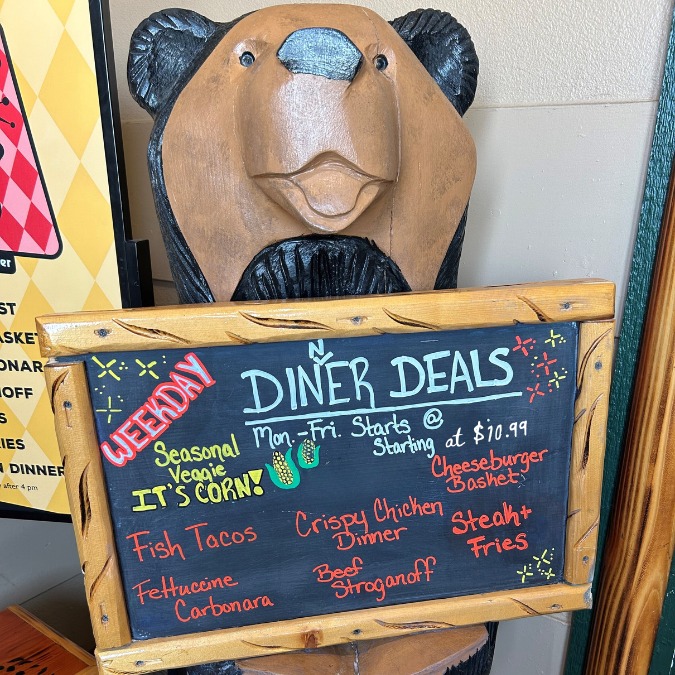 WEEKDAY
DINER DEALS
N
Mon.-Fri. Starts @
Starting at $10.99
Seasonal
Veggie
IT'S CORN!
Cheeseburger
Basket
Fish Tacos
Crispy Chicken
Dinner
Steak +
Fries
Fettuccine
Carbonara
Beef
Stroganoff
er
ST
ASKET
ONAR
OFF
S
IES
N DINNER
after 4 pm